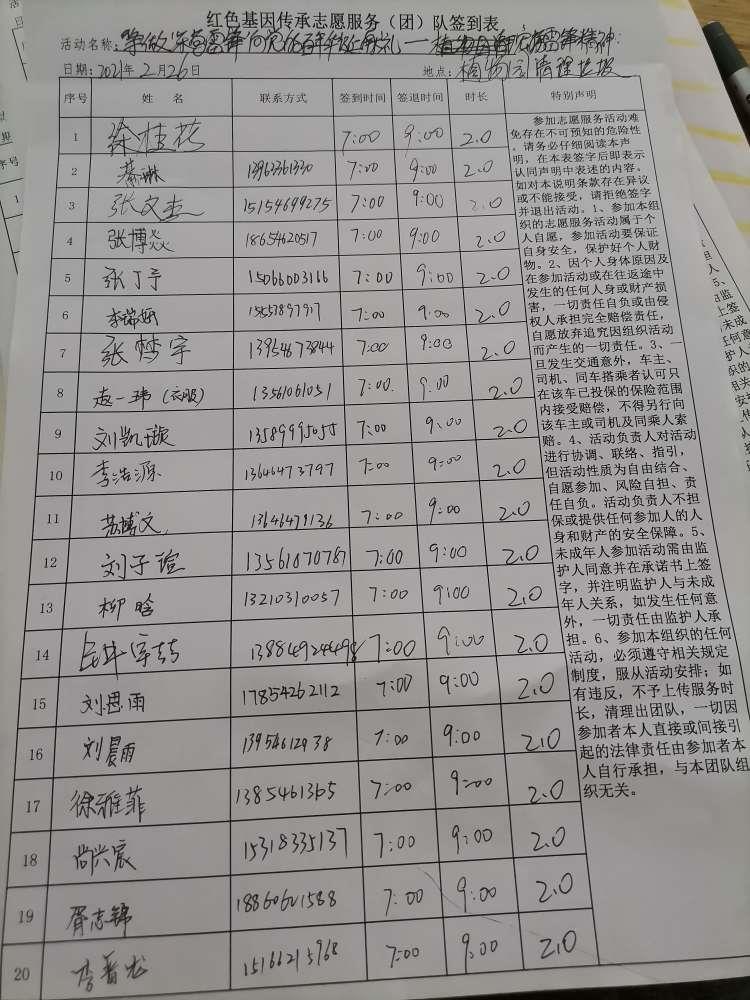 红色基因传承志愿服务（团）队签到表
活动名称：争做东营雷锋 向党的百年华诞献礼——植物园
雷锋精神
日期：2021年2月26日 地点：植物园清理垃圾
序号 姓 名 联系方式 签到时间 签退时间 时长 特别声明
1 徐桂花 7:00 9:00 2.0
2 綦琳 13963361330 7:00 9:00 2.0
3 张文杰 15154699275 7:00 9:00 2.0
4 张博焱 18654620517 7:00 9:00 2.0
5 张丁予 15066003166 7:00 9:00 2.0
6 李瑞妍 15553897917 7:00 9:00 2.0
7 张梦宇 13954673844 7:00 9:00 2.0
8 赵一玮（衣服） 13561061051 7:00 9:00 2.0
9 刘凯璇 13589995055 7:00 9:00 2.0
10 李浩源 13646473797 7:00 9:00 2.0
11 苏博文 13646479136 7:00 9:00 2.0
12 刘子瑄 13561870787 7:00 9:00 2.0
13 柳晗 13210310057 7:00 9:00 2.0
14 13884924498 7:00 9:00 2.0
15 刘思雨 17854262112 7:00 9:00 2.0
16 刘晨雨 13954612938 7:00 9:00 2.0
17 徐雅菲 1385461365 7:00 9:00 2.0
18 尚兴宸 15318335137 7:00 9:00 2.0
19 胥志锦 18860601588 7:00 9:00 2.0
20 李晋龙 15166215968 7:00 9:00 2.0
参加志愿服务活动难
免存在不可预知的危险性
，请务必仔细阅读本声
明，在本表签字后即表示
认同声明中表述的内容。
如对本说明条款存在异议
或不能接受，请拒绝签字
并退出活动。1、参加本组
织的志愿服务活动属于个
人自愿，参加活动要保证
自身安全，保护好个人财
物。2、因个人身体原因及
在参加活动或在往返途中
发生的任何人身或财产损
害，一切责任自负或由侵
权人承担完全赔偿责任，
自愿放弃追究因组织活动
而产生的一切责任。3、一
旦发生交通意外，车主、
司机、同车搭乘者认可只
在该车已投保的保险范围
内接受赔偿，不得另行向
该车主或司机及同乘人索
赔。4、活动负责人对活动
进行协调、联络、指引，
但活动性质为自由结合、
自愿参加、风险自担、责
任自负。活动负责人不担
保或提供任何参加人的人
身和财产的安全保障。5、
未成年人参加活动需由监
护人同意并在承诺书上签
字，并注明监护人与未成
年人关系，如发生任何意
外，一切责任由监护人承
担。6、参加本组织的任何
活动，必须遵守相关规定
制度，服从活动安排；如
有违反，不予上传服务时
长，清理出团队，一切因
参加者本人直接或间接引
起的法律责任由参加者本
人自行承担，与本团队组
织无关。